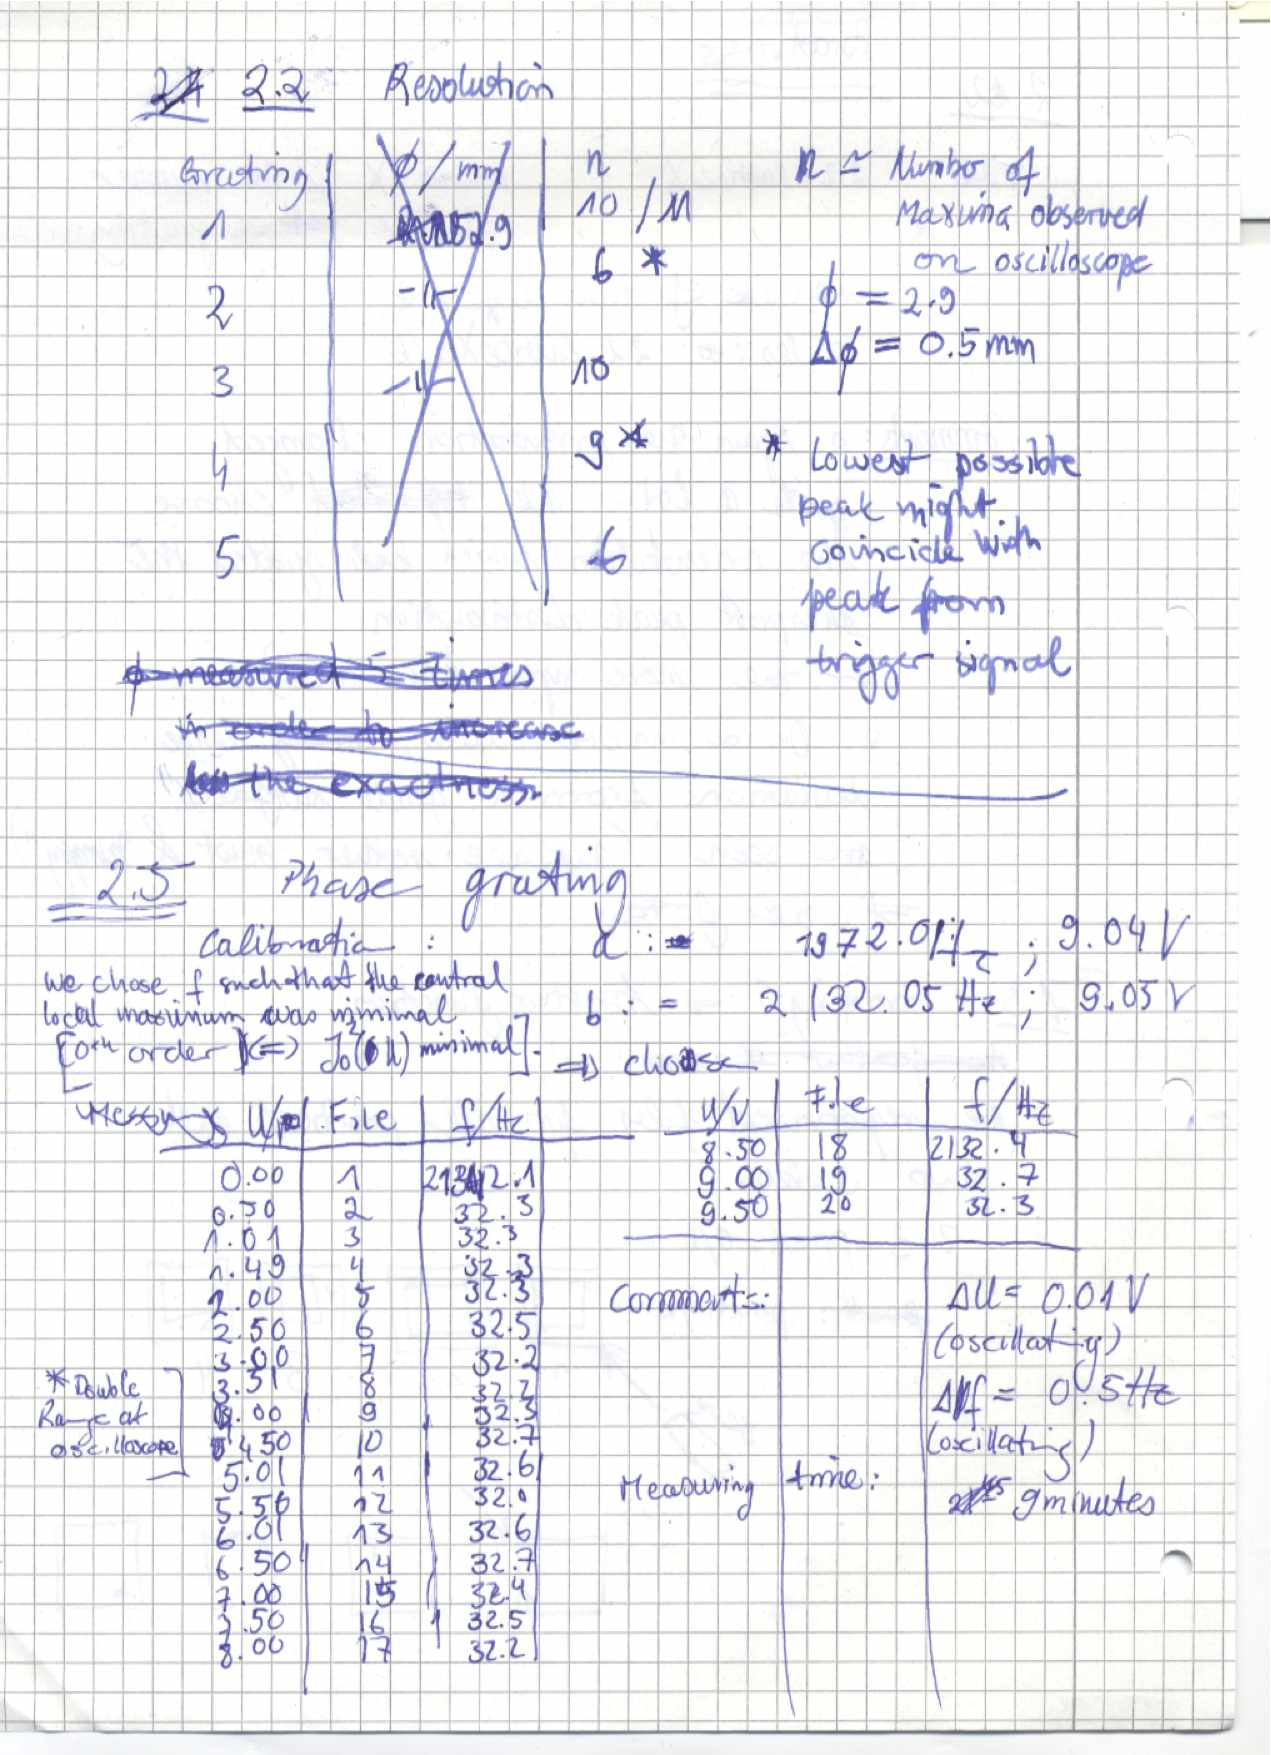 2.2 Resolution
Grating ϕ/mm n
1 2.9 10/11
2 -"- 6 *
3 -"- 10
4 9 *
5 6
n ≃ Number of
Maxima observed
on oscilloscope
ϕ = 2.9
Δϕ = 0.5 mm
* Lowest possible
peak might
coincide with
peak from
trigger signal
ϕ measured 5 times
in order to increase
the exactness
2.5 Phase grating
Calibration : a := 1972.01 Hz ; 9.04 V
b := 2132.05 Hz ; 9.05 V
we chose f such that the central
local maximum was minimal
[0th order (=) J₀²( ) minimal].
=> choose
U/ File f/Hz
0.00 1 2132.1
0.50 2 32.3
1.01 3 32.3
1.49 4 32.3
2.00 5 32.3
2.50 6 32.5
3.00 7 32.2
3.51 8 32.2
4.00 9 32.3
4.50 10 32.7
5.01 11 32.6
5.50 12 32.0
6.01 13 32.6
6.50 14 32.7
7.00 15 32.4
7.50 16 32.5
8.00 17 32.2
* Double
Range at
oscilloscope
U/V File f/Hz
8.50 18 2132.4
9.00 19 32.7
9.50 20 32.3
Comments: ΔU = 0.01 V
(oscillating)
Δf = 0.5 Hz
(oscillating)
Measuring time: 9 minutes